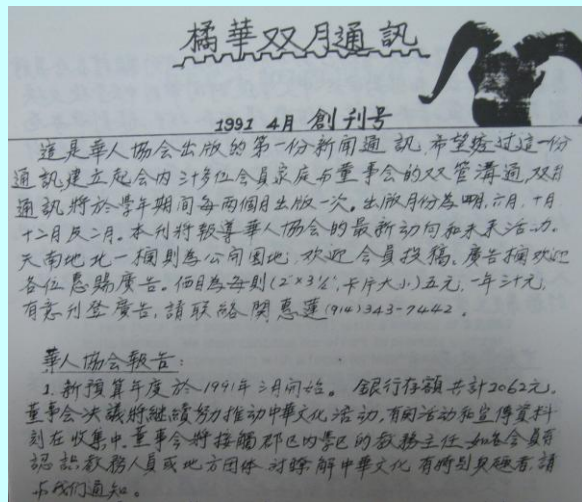 橘華双月通訊
1991 4月 創刊号
這是華人協会出版的第一份新闻通訊,希望透过這一份
通訊建立起会内三十多位会員家庭与董事会的双管溝通,双月
通訊將於學年期间每两個月出版一次。出版月份為四月,六月,十月
十二月及二月。本刊將報導華人協会的最新动向和未来活动。
天南地北一欄則為公開園地,欢迎会員投稿,廣告欄欢迎
各位惠賜廣告。價目為每則(2"×3½",卡片大小)五元,一年三十元,
有意刊登廣告,請联絡関惠蓮(914)343-7442。
華人協会報告:
1.新預算年度於1991年三月開始。銀行存額共計2062元。
董事会决議將继續努力推动中華文化活动,有関活动和宣傳資料
刻在收集中,董事会將接觸邻区内學区的教務主任,如各会員有
認識教務人員或地方团体对瞭解中華文化有特别興趣者,請
与我們通知。